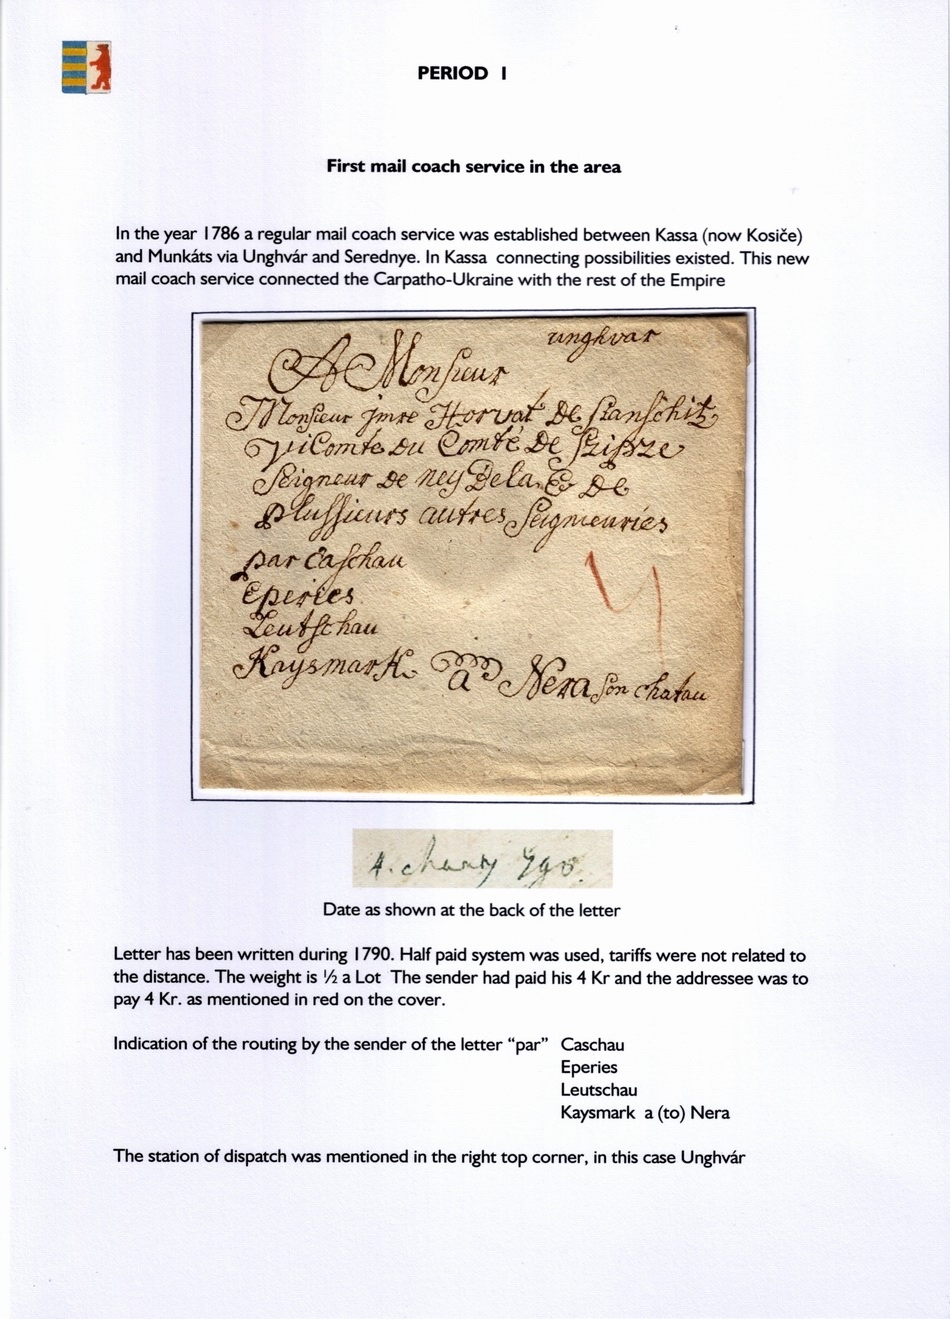 PERIOD I
First mail coach service in the area
In the year 1786 a regular mail coach service was established between Kassa (now Kosiče)
and Munkáts via Unghvár and Serednye. In Kassa connecting possibilities existed. This new
mail coach service connected the Carpatho-Ukraine with the rest of the Empire
unghvar
A Monsieur
Monsieur jmre Horvat De Stanschitz
ViComte Du Comté De Szipze
Seigneur De ney Dela & De
plussieurs autres Seigneuries
par Caschau
Eperies
Leutschau
Kaysmark a Nera son chatau
4
4. 790.
Date as shown at the back of the letter
Letter has been written during 1790. Half paid system was used, tariffs were not related to
the distance. The weight is ½ a Lot The sender had paid his 4 Kr and the addressee was to
pay 4 Kr. as mentioned in red on the cover.
Indication of the routing by the sender of the letter “par” Caschau
Eperies
Leutschau
Kaysmark a (to) Nera
The station of dispatch was mentioned in the right top corner, in this case Unghvár